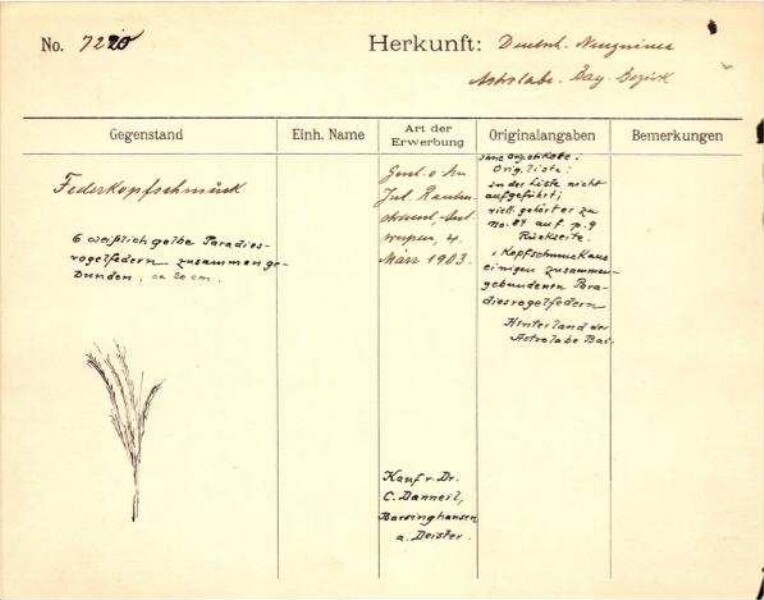 No. 7220
Herkunft: Deutsch. Neuguinea
Astrolabe. Bay. Bezirk
Gegenstand
Einh. Name
Art der
Erwerbung
Originalangaben
Bemerkungen
Federkopfschmuck
6 weißlich gelbe Paradies-
vogelfedern zusammenge-
bunden, ca 20 cm.
Jul.
4.
März 1903.
Kauf v. Dr.
C. Dannert,
Barsinghausen
a. Deister.
ohne
Orig. liste:
in der Liste nicht
aufgeführt;
viell. gehört er zu
No. 84 auf p. 9
Rückseite.
"Kopfschmuck aus
einigen zusammen-
gebundenen Para-
diesvogelfedern
Hinterland der
Astrolabe Bai.